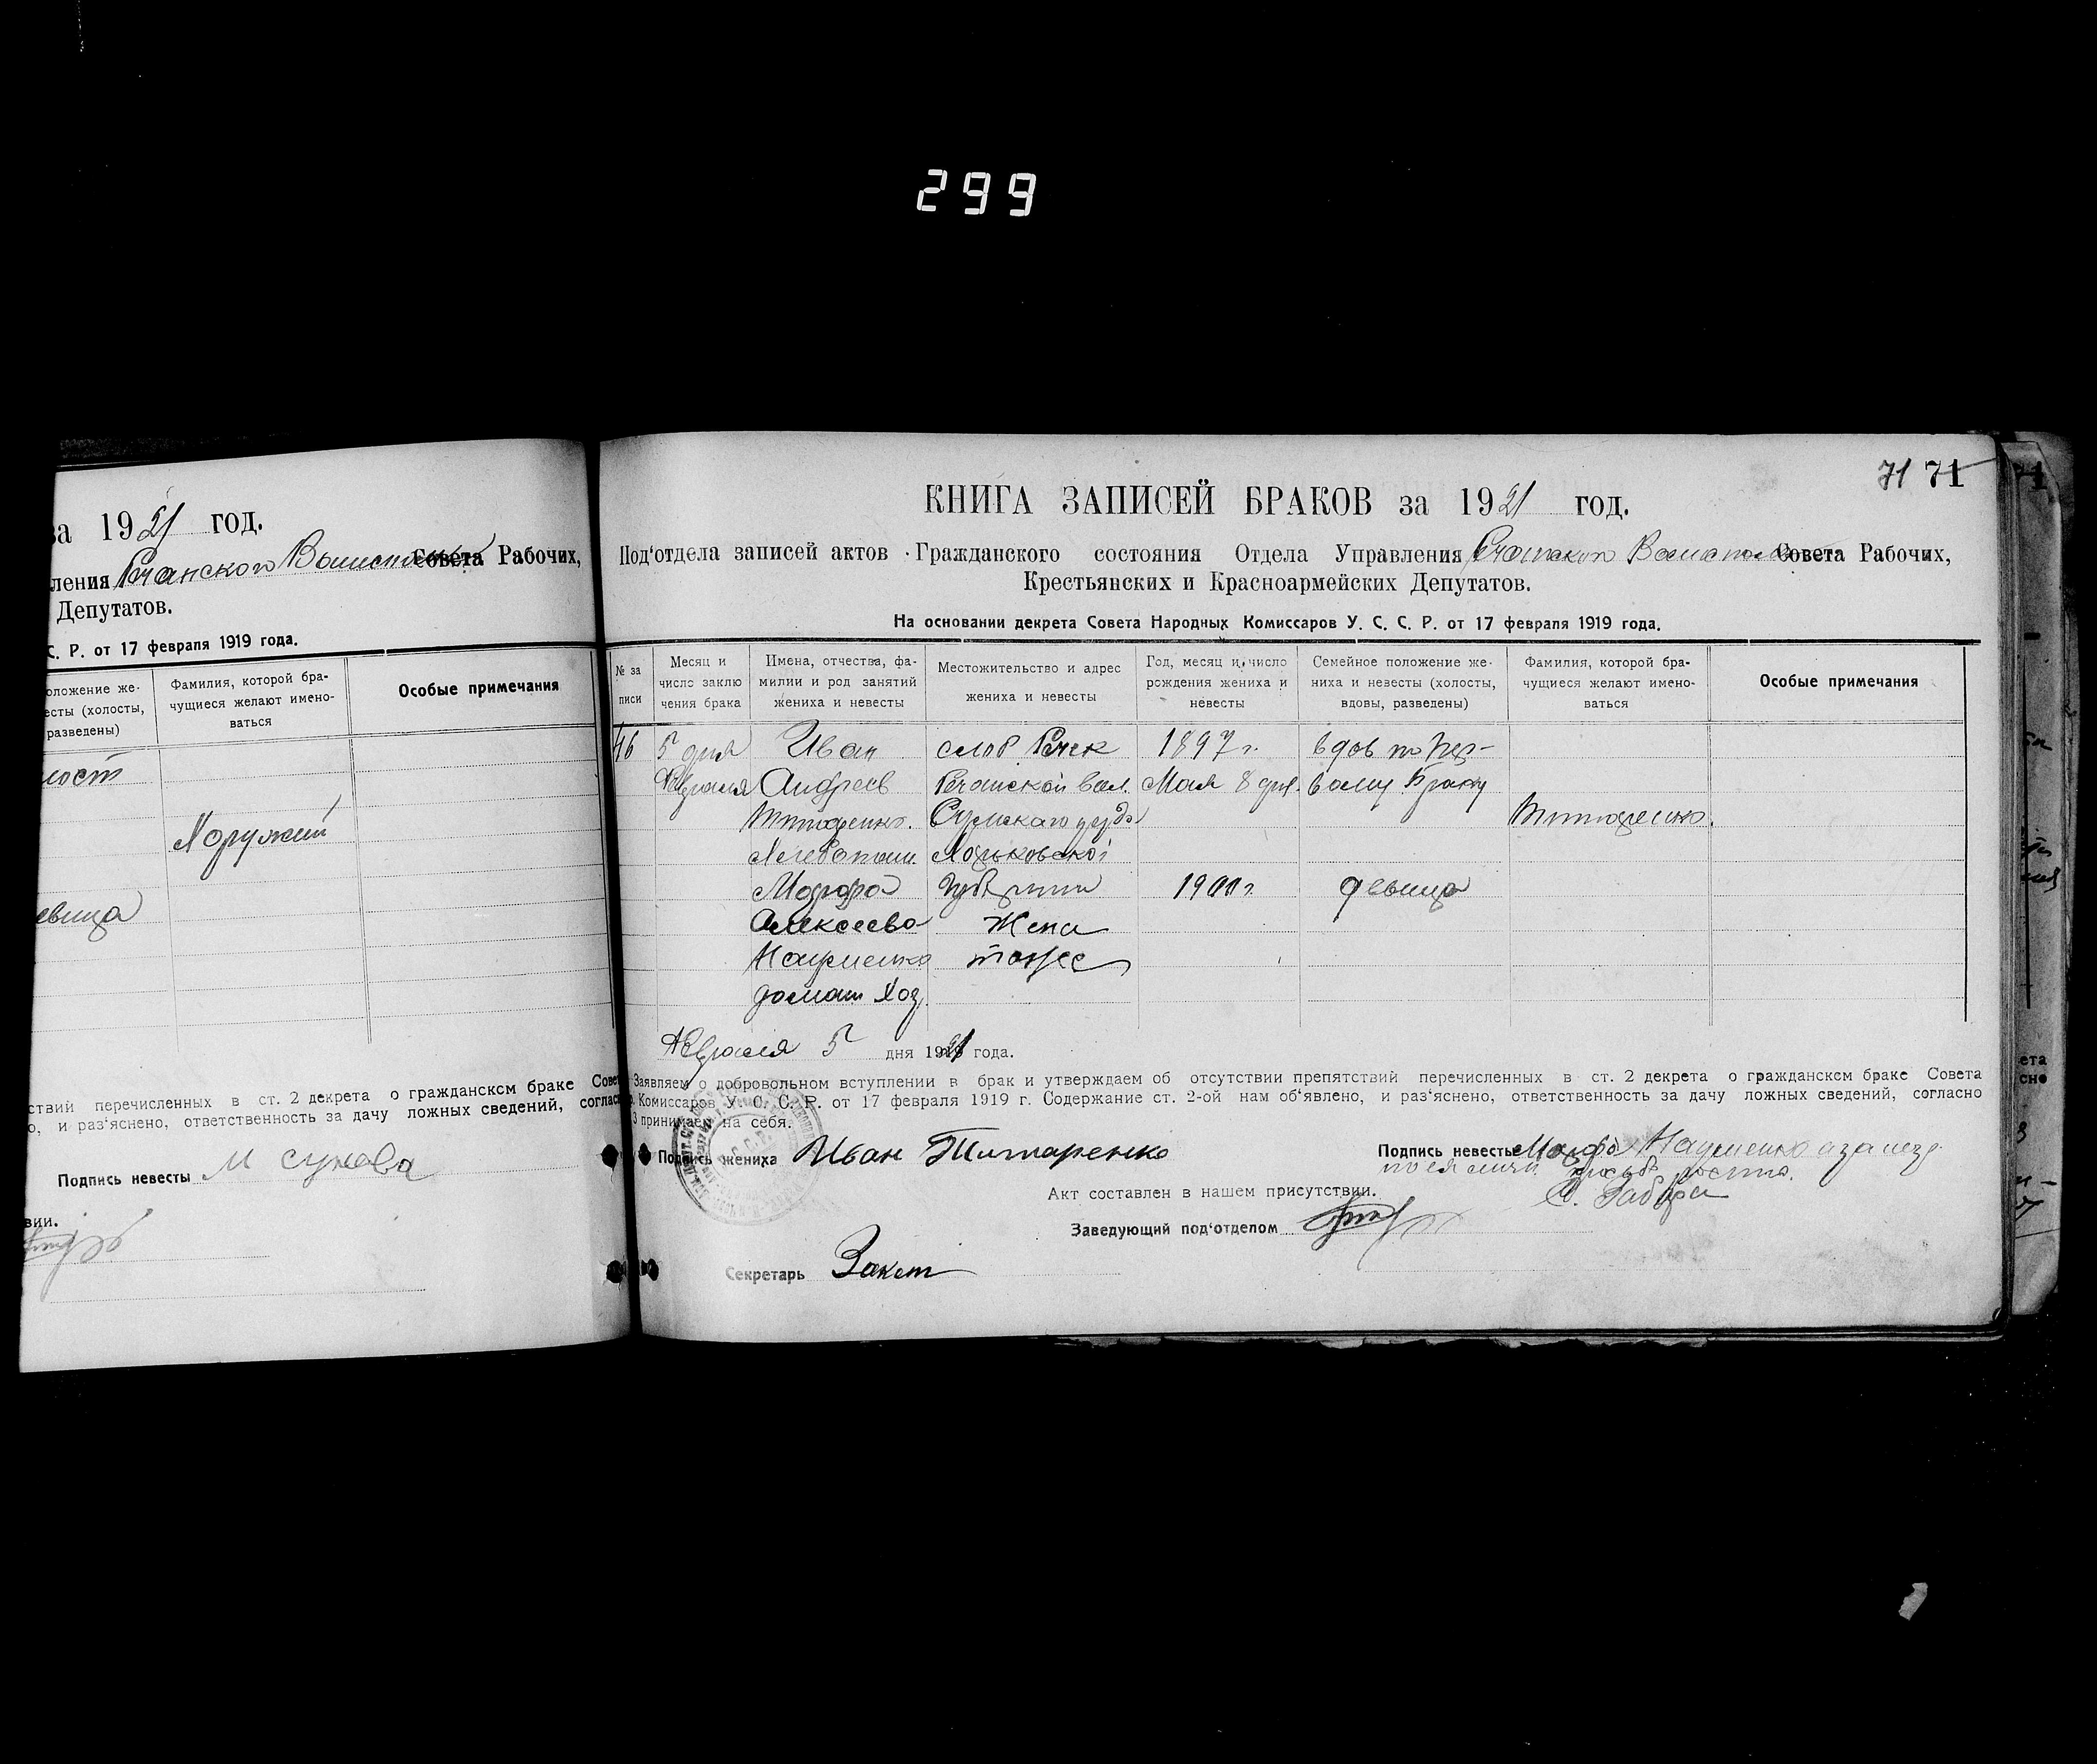 299
за 1921 год.
ления Речанского Волисполкома Совета Рабочих,
Депутатов.
С. Р. от 17 февраля 1919 года.
оложение же-
есты (холосты,
разведены)
Фамилия, которой бра-
чущиеся желают имено-
ваться
Особые примечания
лост
евица
ствий перечисленных в ст. 2 декрета о гражданском браке Совет
о, и раз'яснено, ответственность за дачу ложных сведений, соглас
Подпись невесты
вии.
71 71
КНИГА ЗАПИСЕЙ БРАКОВ за 1921 год.
Под'отдела записей актов Гражданского состояния Отдела Управления Речанского Волисполкома Совета Рабочих,
Крестьянских и Красноармейских Депутатов.
На основании декрета Совета Народных Комиссаров У. С. С. Р. от 17 февраля 1919 года.
№ за
писи
Месяц и
число заклю
чения брака
Имена, отчества, фа-
милии и род занятий
жениха и невесты
Местожительство и адрес
жениха и невесты
Год, месяц и число
рождения жениха и
невесты
Семейное положение же-
ниха и невесты (холосты,
вдовы, разведены)
Фамилия, которой бра-
чущиеся желают имено-
ваться
Особые примечания
46 5 дня Иван слоб Речек 1897 г. вдов по пер-
Февраля Андреев Речанской вол. Мая 8 дня. вому браку
Титаренко. Сумского уезда Титаренко.
Хлебопаш. Харьковской
Марфа Губернии 1900 г. девица
Алексеева Жена
Науменко тоже
домаш Хоз.
Февраля 5 дня 1921 года.
Заявляем о добровольном вступлении в брак и утверждаем об отсутствии препятствий перечисленных в ст. 2 декрета о гражданском браке Совета
Комиссаров У. С. С. Р. от 17 февраля 1919 г. Содержание ст. 2-ой нам об'явлено, и раз'яснено, ответственность за дачу ложных сведений, согласно
3 принимаем на себя.
Подпись жениха Иван Титаренко
Подпись невесты Марфа Науменко а за незр.
по ея личн. прозьбе
Акт составлен в нашем присутствии.
Заведующий под'отделом
Секретарь